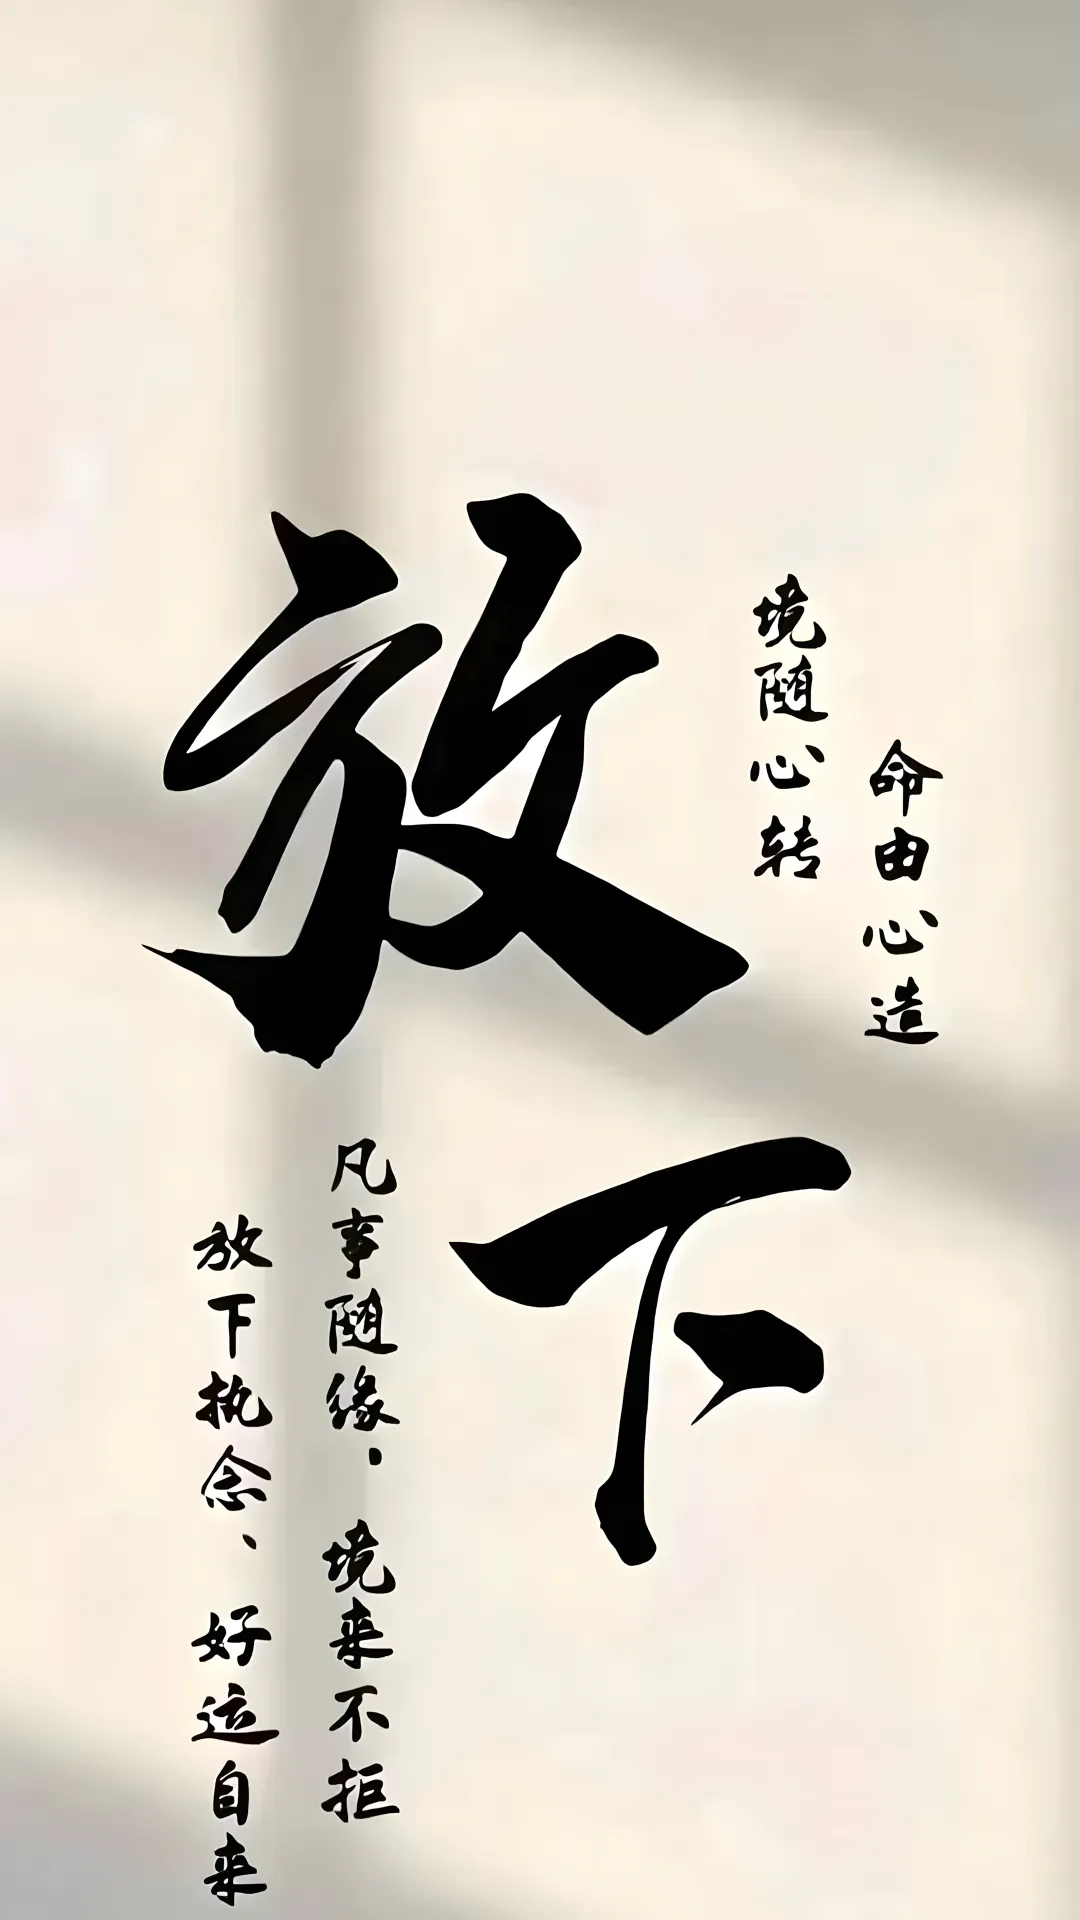 命由心造
境随心转
放下
凡事随缘、境来不拒
放下执念、好运自来